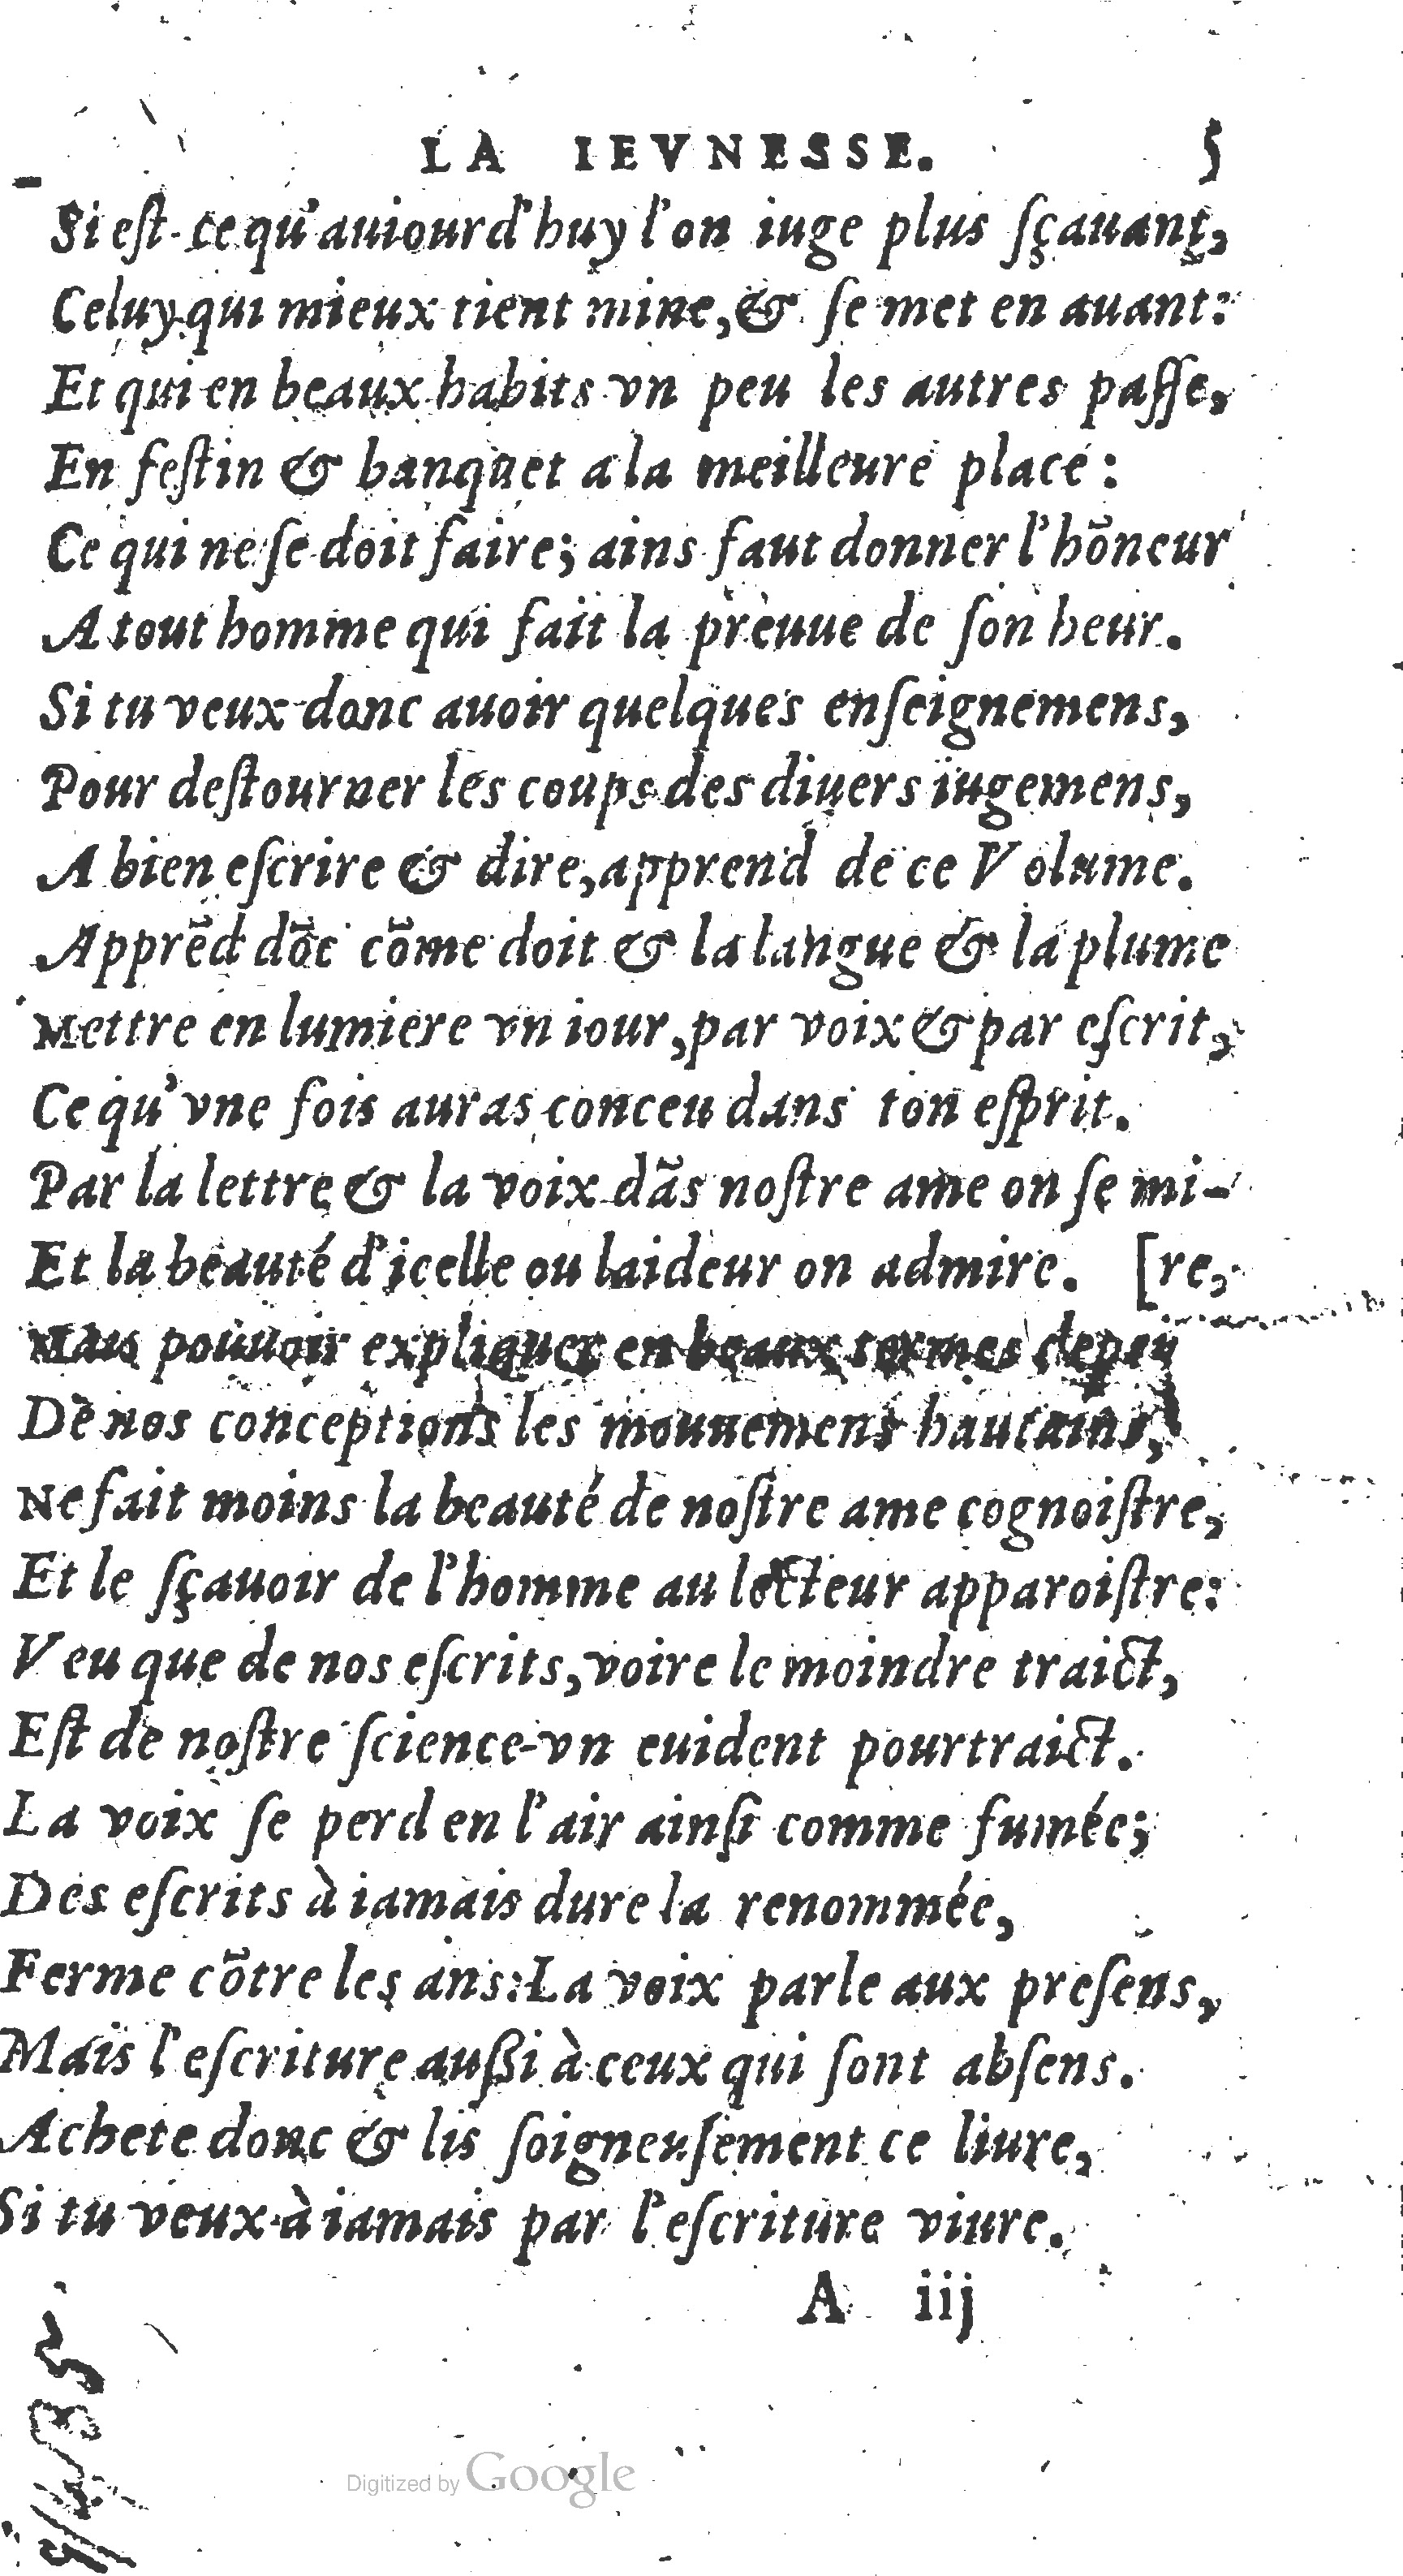 LA IEVNESSE. 5
Si eſt-ce qu'auiourd'huy l'on iuge plus ſçauant,
Celuy qui mieux tient mine, & ſe met en auant:
Et qui en beaux habits vn peu les autres paſſe,
En feſtin & banquet a la meilleure place:
Ce qui ne ſe doit faire; ains faut donner l'hõneur
A tout homme qui fait la preuue de ſon heur.
Si tu veux donc auoir quelques enſeignemens,
Pour deſtourner les coups des diuers iugemens,
A bien eſcrire & dire, apprend de ce Volume.
Apprẽd dõc cõme doit & la langue & la plume
Mettre en lumiere vn iour, par voix & par eſcrit,
Ce qu'vne fois auras conceu dans ton eſprit.
Par la lettre & la voix dãs noſtre ame on ſe mi-
Et la beauté d'icelle ou laideur on admire. [re,
Mais pouuoir expliquer en beaux termes
De nos conceptions les mouuemens hautains,
Ne fait moins la beauté de noſtre ame cognoiſtre,
Et le ſçauoir de l'homme au lecteur apparoiſtre:
Veu que de nos eſcrits, voire le moindre traict,
Eſt de noſtre ſcience vn euident pourtraict.
La voix ſe perd en l'air ainſi comme fumée;
Des eſcrits à iamais dure la renommée,
Ferme cõtre les ans: La voix parle aux preſens,
Mais l'eſcriture auſſi à ceux qui ſont abſens.
Achete donc & lis ſoigneuſement ce liure,
Si tu veux à iamais par l'eſcriture viure.
A iij
Digitized by Google